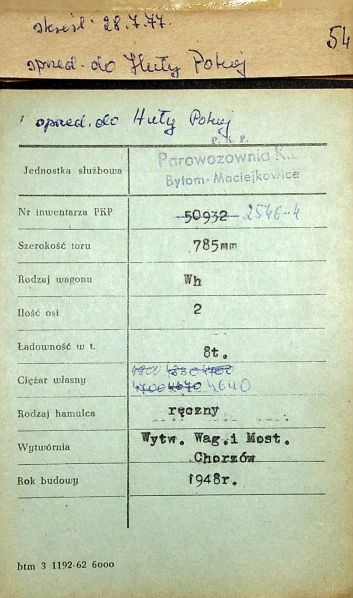 skreśl. 28.7.77.
54
sprzed. do Huty Pokój
sprzed. do Huty Pokój
P. K. P.
Jednostka służbowa Parowozownia K.D.
Bytom-Maciejkowice
Nr inwentarza PKP 50932 2546-4
Szerokość toru 785mm
Rodzaj wagonu Wh
Ilość osi 2
Ładowność w t. 8t.
Ciężar własny
4700 4670 4640
Rodzaj hamulca ręczny
Wytwórnia Wytw. Wag.i Most.
Chorzów
Rok budowy 1948r.
btm 3 1192-62 6000